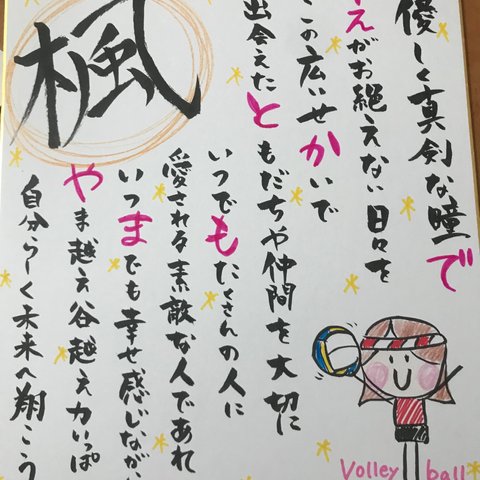 優しく真剣な瞳で
えがお絶えない日々を
この広いせかいで
出会えたともだちや仲間を大切に
いつでもたくさんの人に
愛される素敵な人であれ
いつまでも幸せ感じなが
やま越え谷越え力いっぱ
自分らしく未来へ翔こう
楓
Volley ball